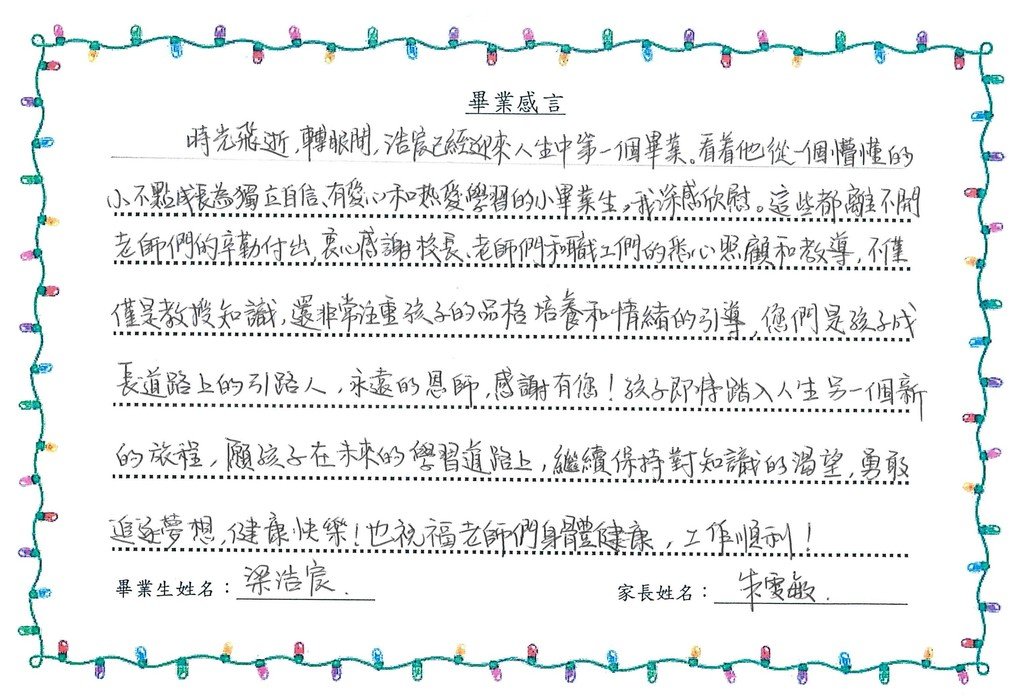 畢業感言
時光飛逝,轉眼間,浩宸已經迎來人生中第一個畢業。看着他從一個懵懂的
小不點成長為獨立自信、有愛心和热愛學習的小畢業生,我深感欣慰。這些都離不開
老師們的辛勤付出,衷心感謝校長、老師們和職工們的悉心照顧和教導,不僅
僅是教授知識,還非常注重孩子的品格培養和情緒的引導,您們是孩子成
長道路上的引路人,永遠的恩師,感謝有您!孩子即将踏入人生另一個新
的旅程,願孩子在未來的學習道路上,繼續保持對知識的渴望,勇敢
追逐夢想,健康快樂!也祝福老師們身體健康,工作順利!
畢業生姓名:梁浩宸.
家長姓名:朱雯敏.